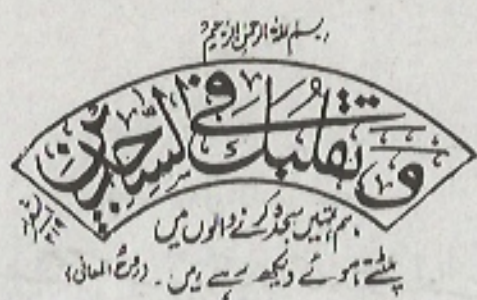 بسم اللہ الرحمن الرحیم
وَتَقَلُّبَكَ فِي السّٰجِدِيْنَ
ہم تمہیں سجدہ کرنے والوں میں
پلٹتے ہوئے دیکھ رہے ہیں۔ (روح المعانی)